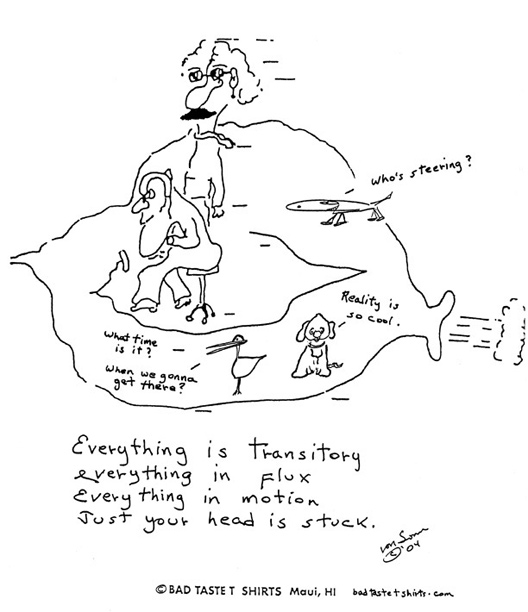 Who's steering?
Reality is
so cool.
What time
is it?
When we gonna
get there?
Everything is Transitory
everything in Flux
Everything in motion
Just your head is stuck.
© '04
© BAD TASTE T SHIRTS Maui, HI badtastetshirts.com